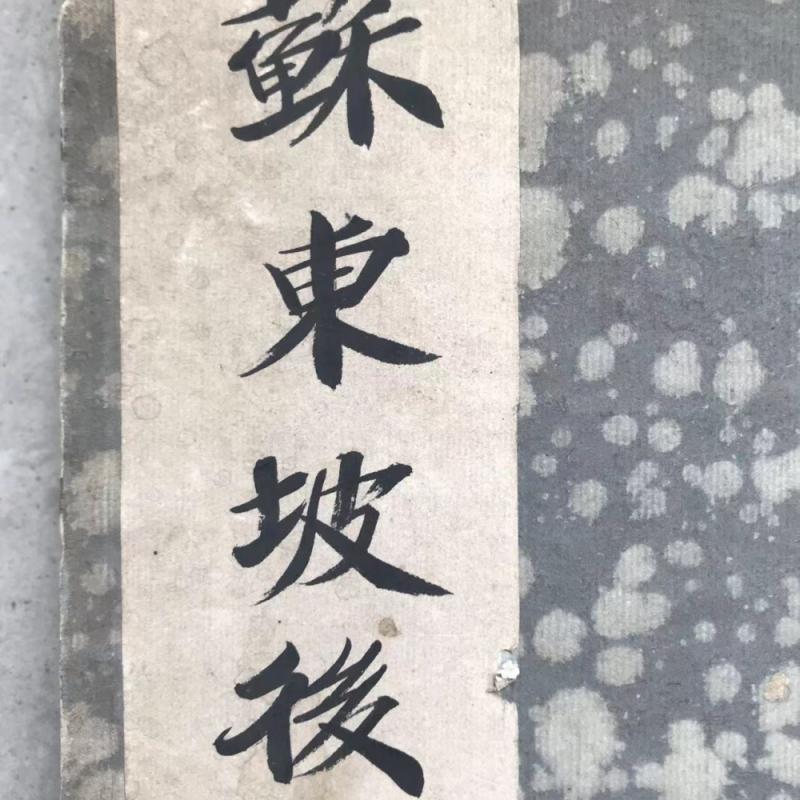 蘇東坡後